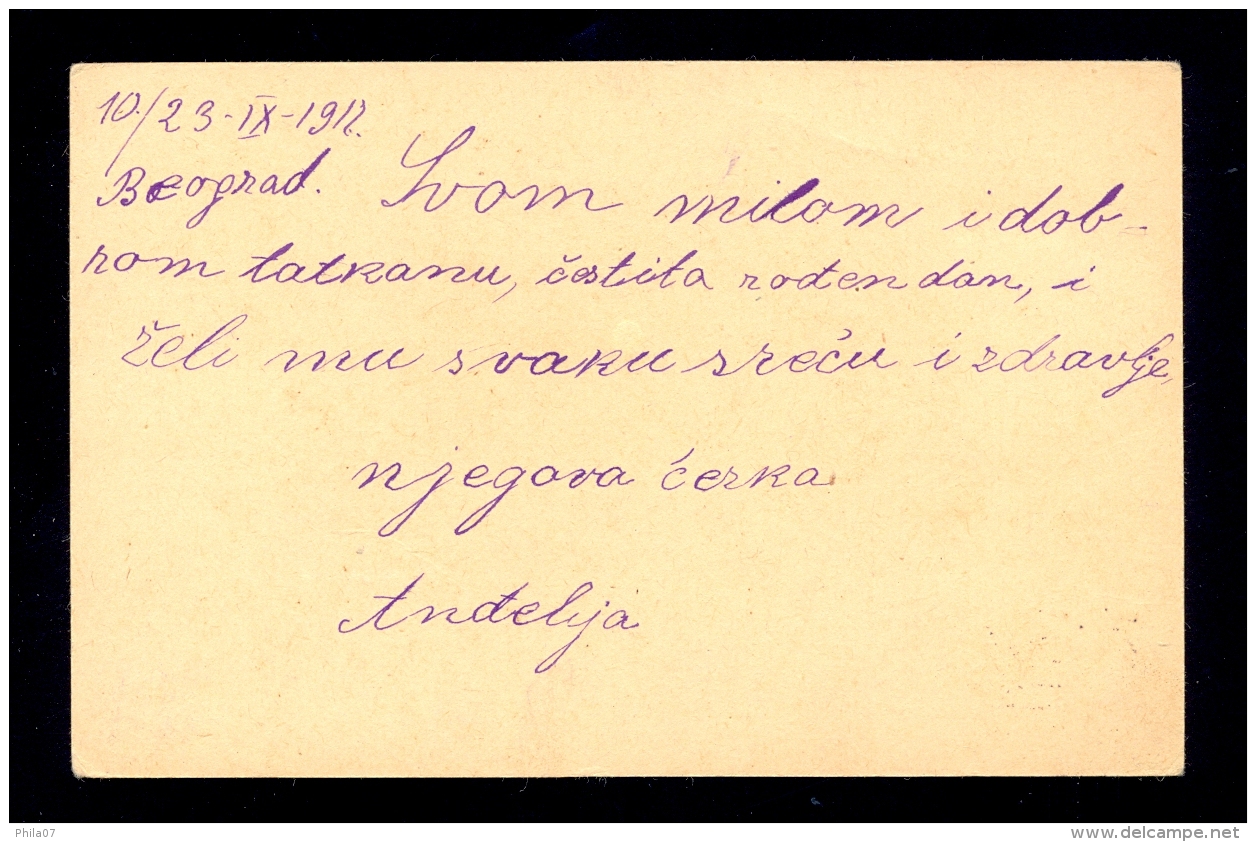 10./23-IX-1917.
Beograd. Svom milom i dob-
rom tatkanu, čestita rođen dan, i
želi mu svaku sreću i zdravlje,
njegova ćerka
Anđelija
Phila07
www.delcampe.net